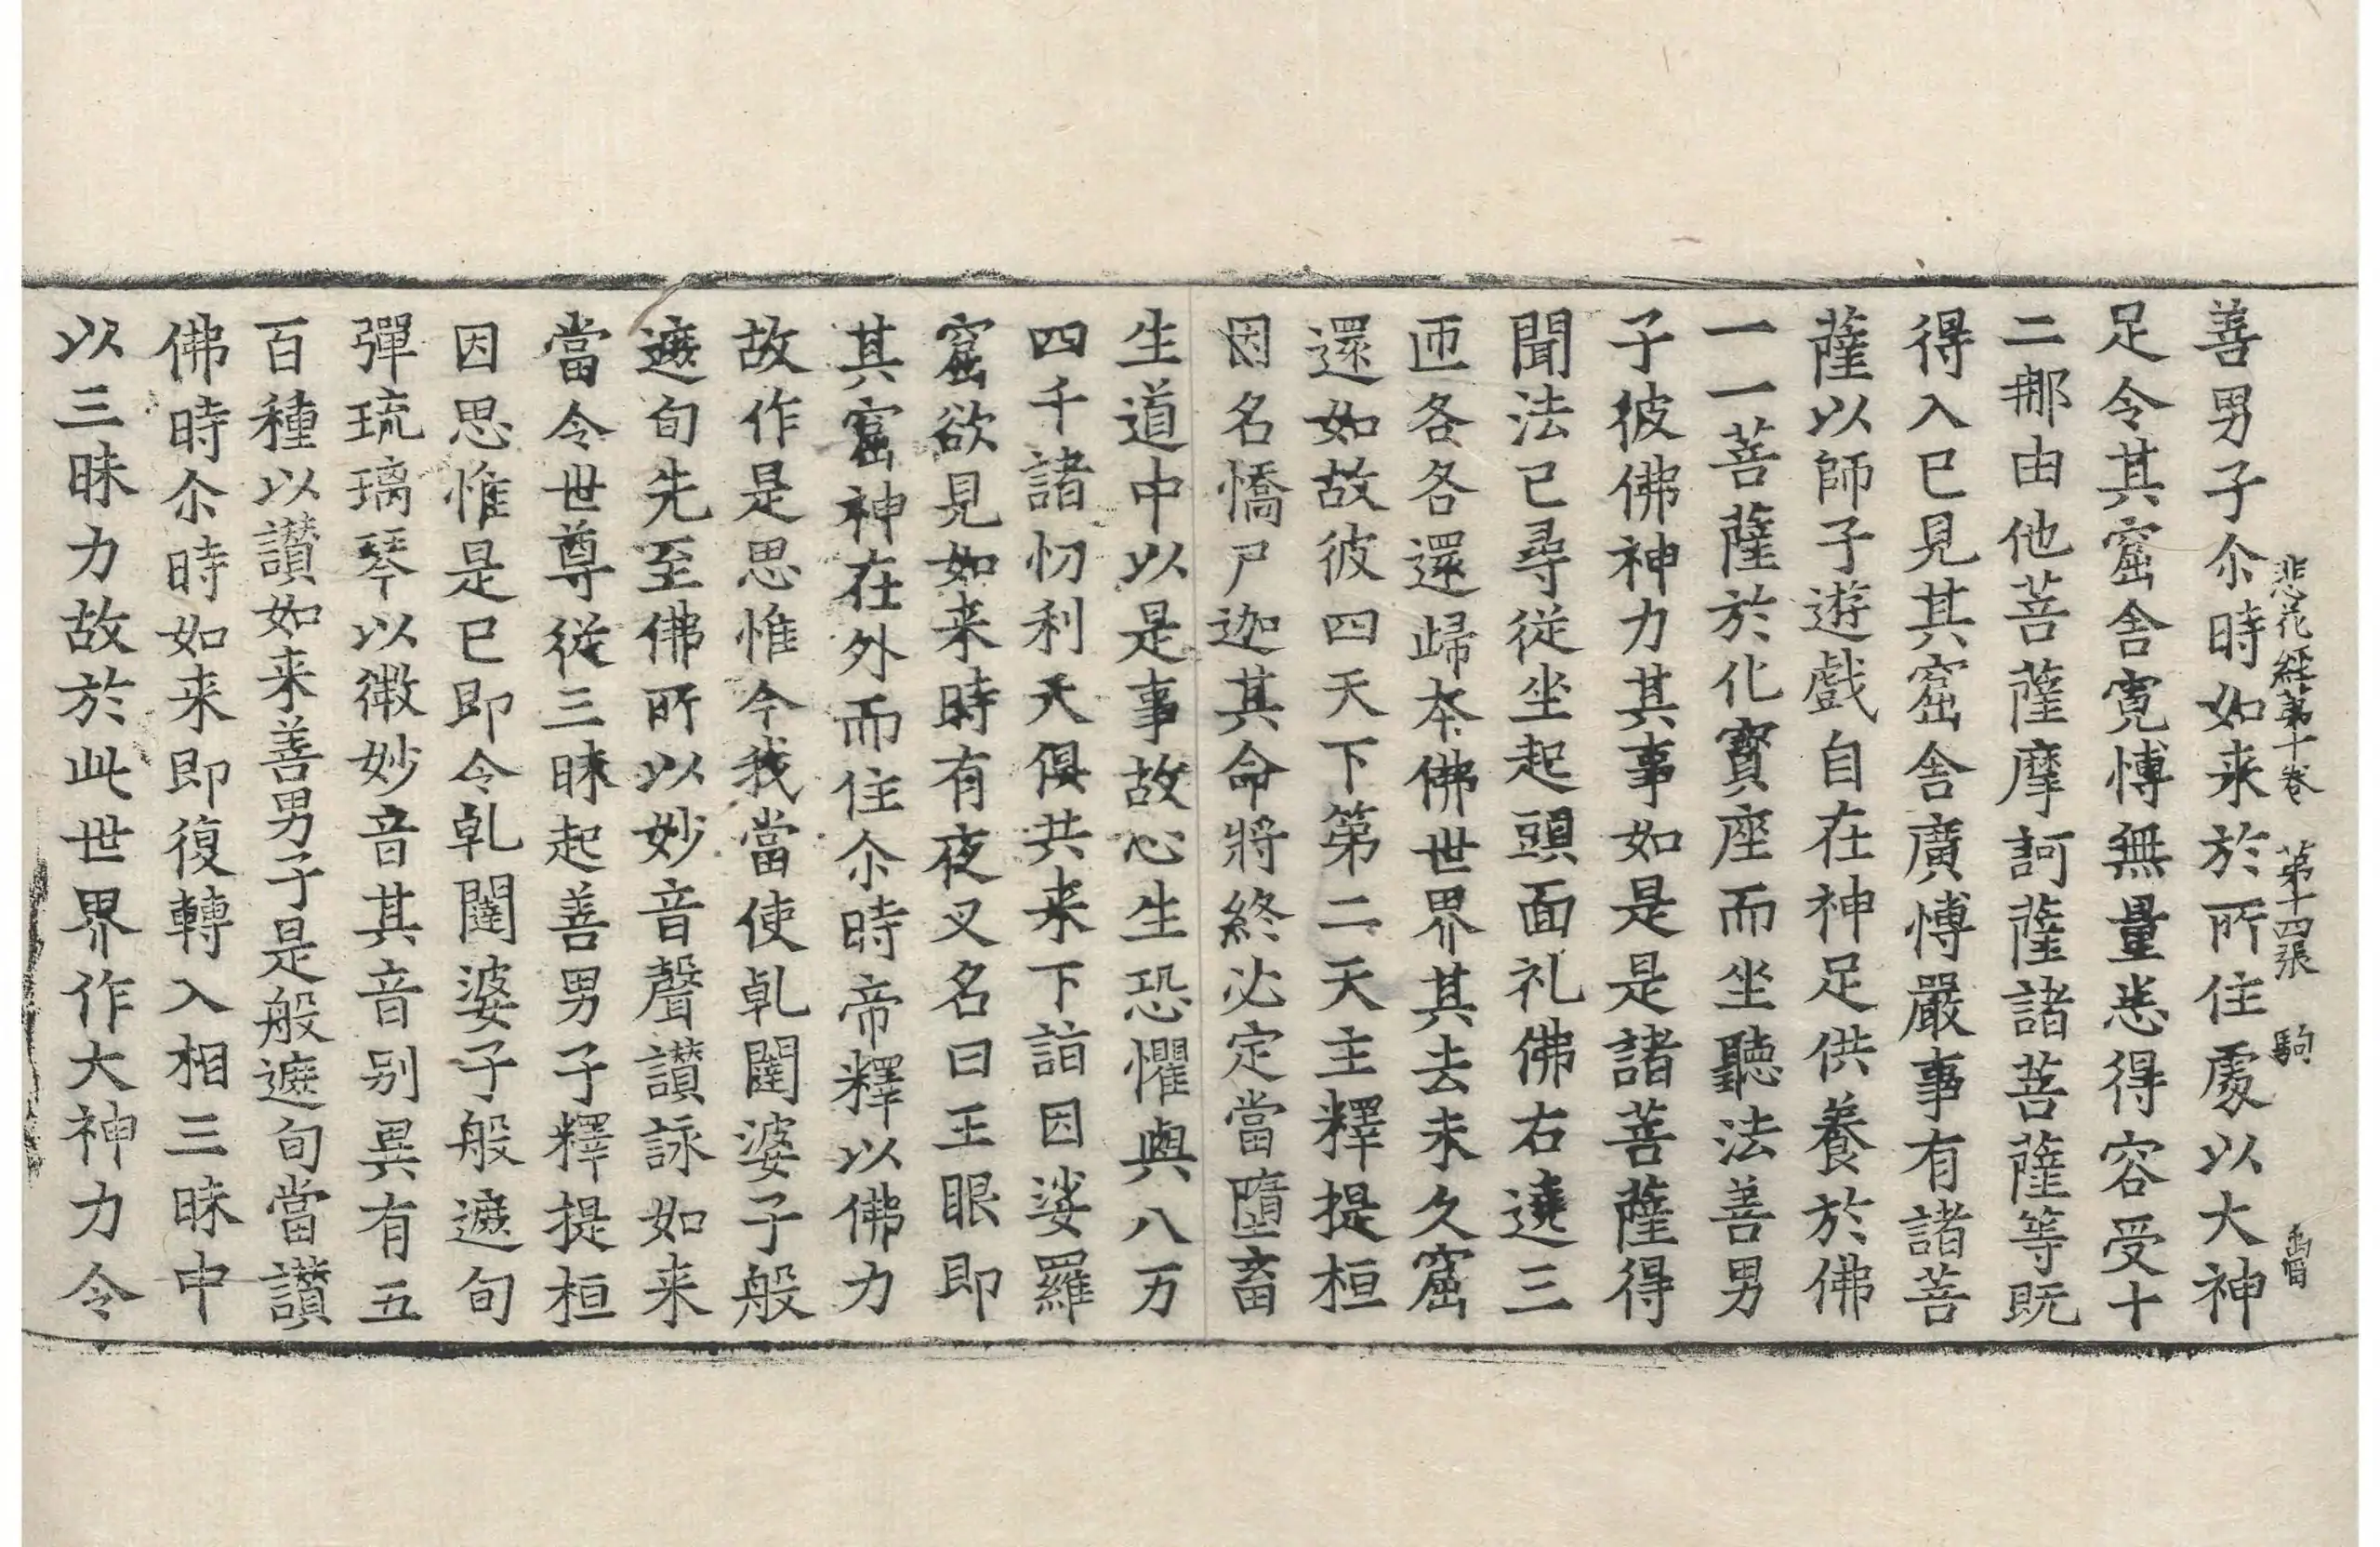 善男子尒時如来於所住處以大神
悲花經第十卷　第十四張　駒
足令其窟舍寛愽無量悉得容受十
二那由他菩薩摩訶薩諸菩薩等既
得入已見其窟舍廣愽嚴事有諸菩
薩以師子遊戲自在神足供養於佛
一一菩薩於化寳座而坐聽法善男
子彼佛神力其事如是是諸菩薩得
聞法已尋從坐起頭面礼佛右遶三
迊各各還歸本佛世界其去未久窟
還如故彼四天下第二天主釋提桓
因名憍尸迦其命將終必定當墮畜
生道中以是事故心生恐懼與八万
四千諸忉利天俱共来下詣因娑羅
窟欲見如来時有夜叉名曰王眼即
其窟神在外而住尒時帝釋以佛力
故作是思惟今我當使乹闥婆子般
遮旬先至佛所以妙音聲讃詠如来
當令世尊從三昧起善男子釋提桓
因思惟是已即令乹闥婆子般遮旬
彈琉璃琴以微妙音其音别異有五
百種以讃如来善男子是般遮旬當讃
佛時尒時如来即復轉入相三昧中
以三昧力故於此世界作大神力令